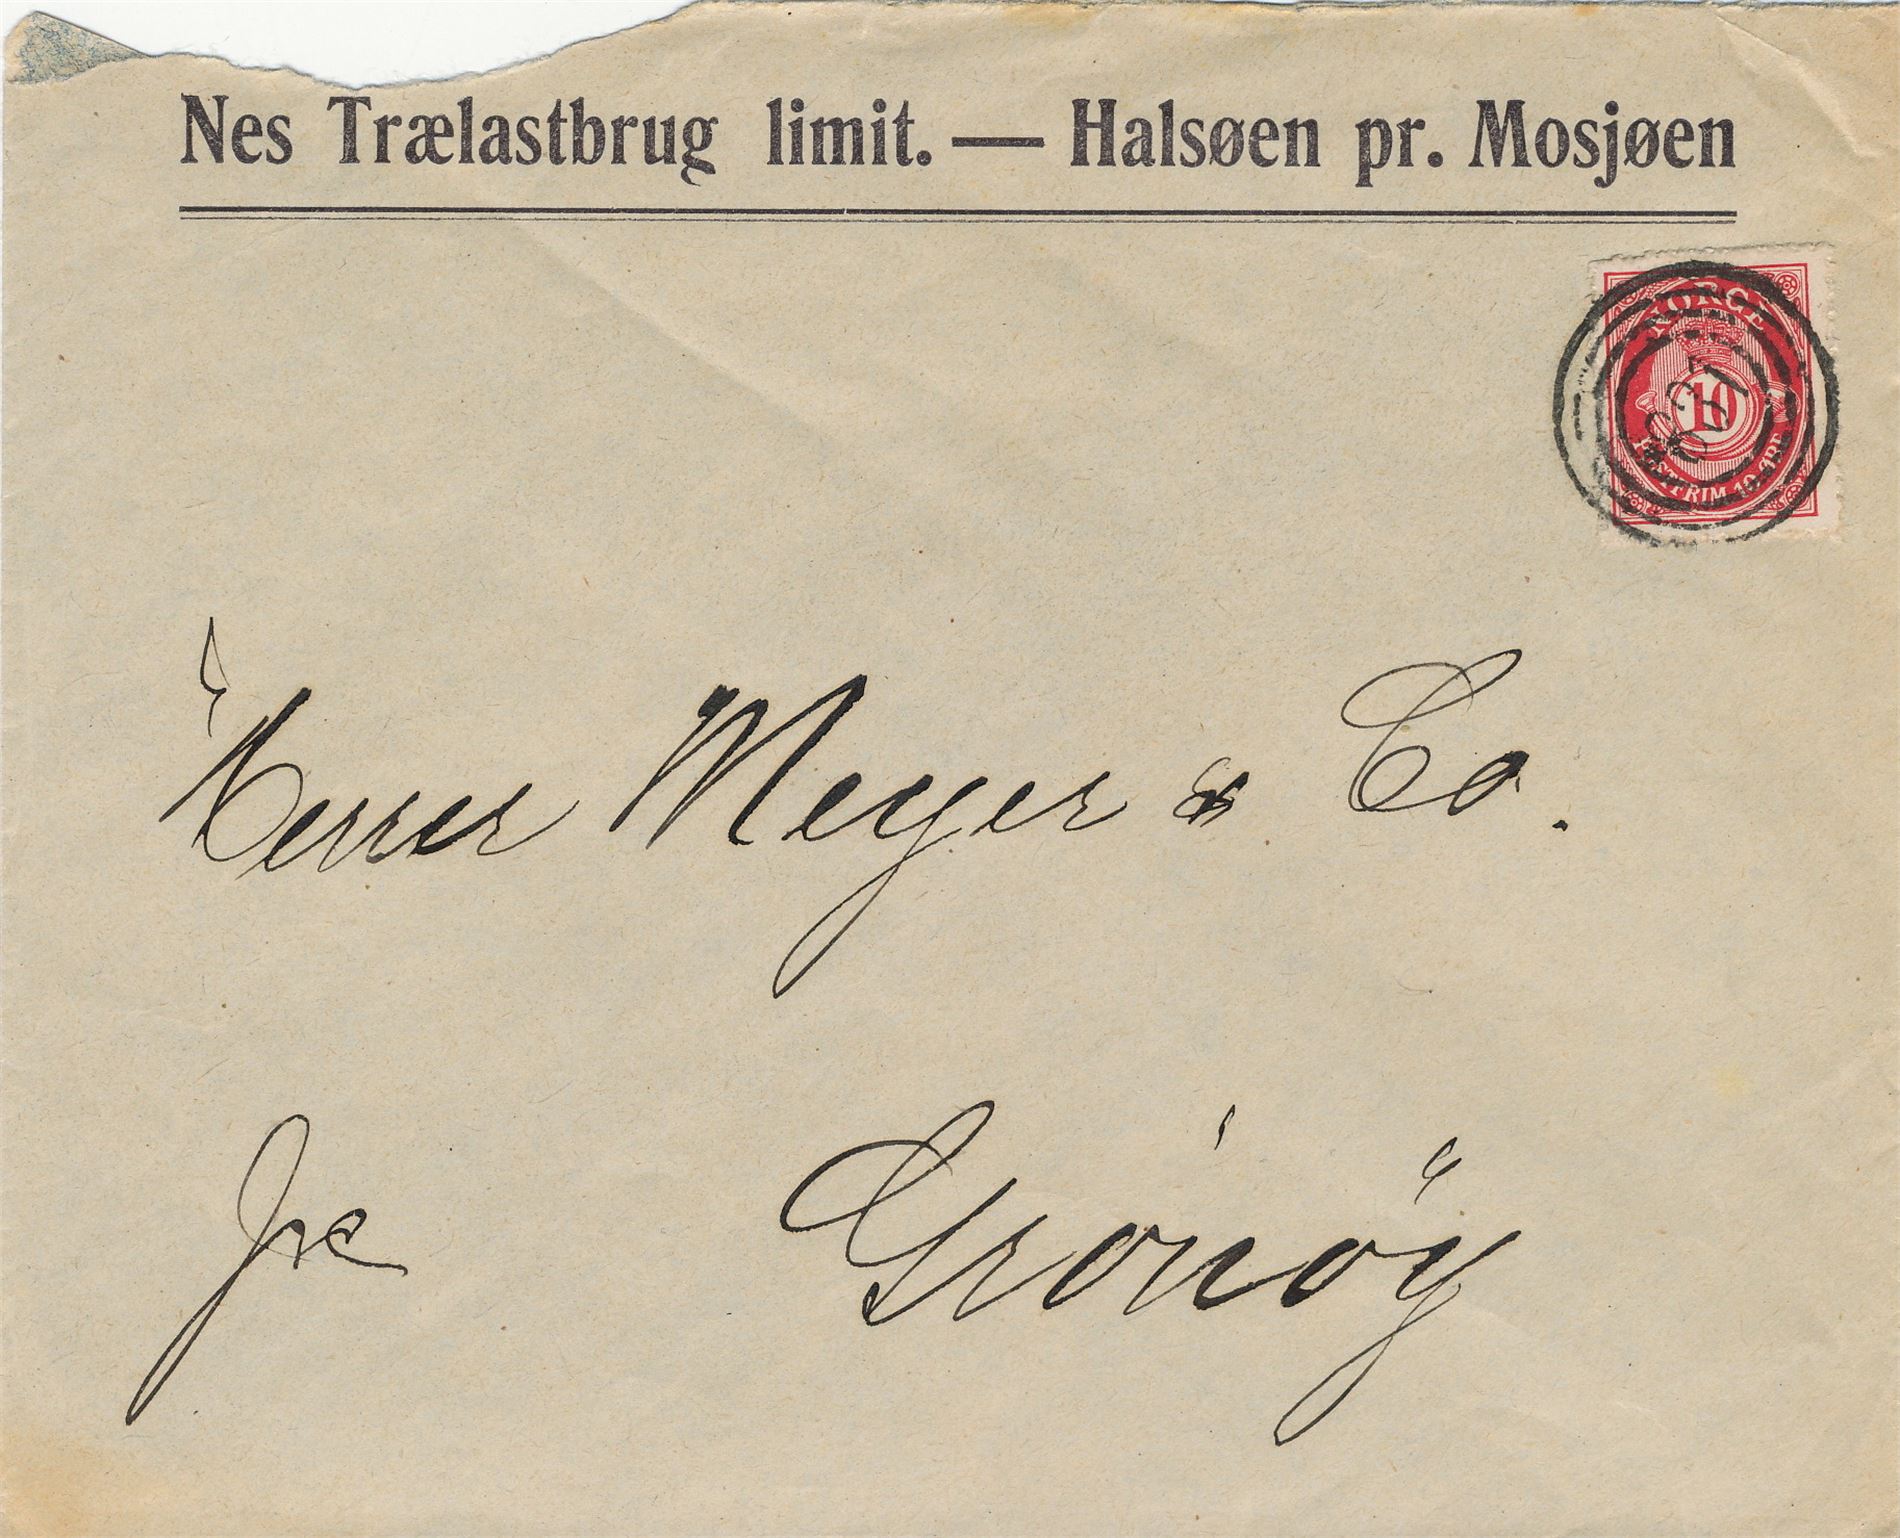 Nes Trælastbrug limit. — Halsøen pr. Mosjøen
NORGE
10
POSTFRIM. 10 ØRE
Herrer Meyer & Co.
Grönöy